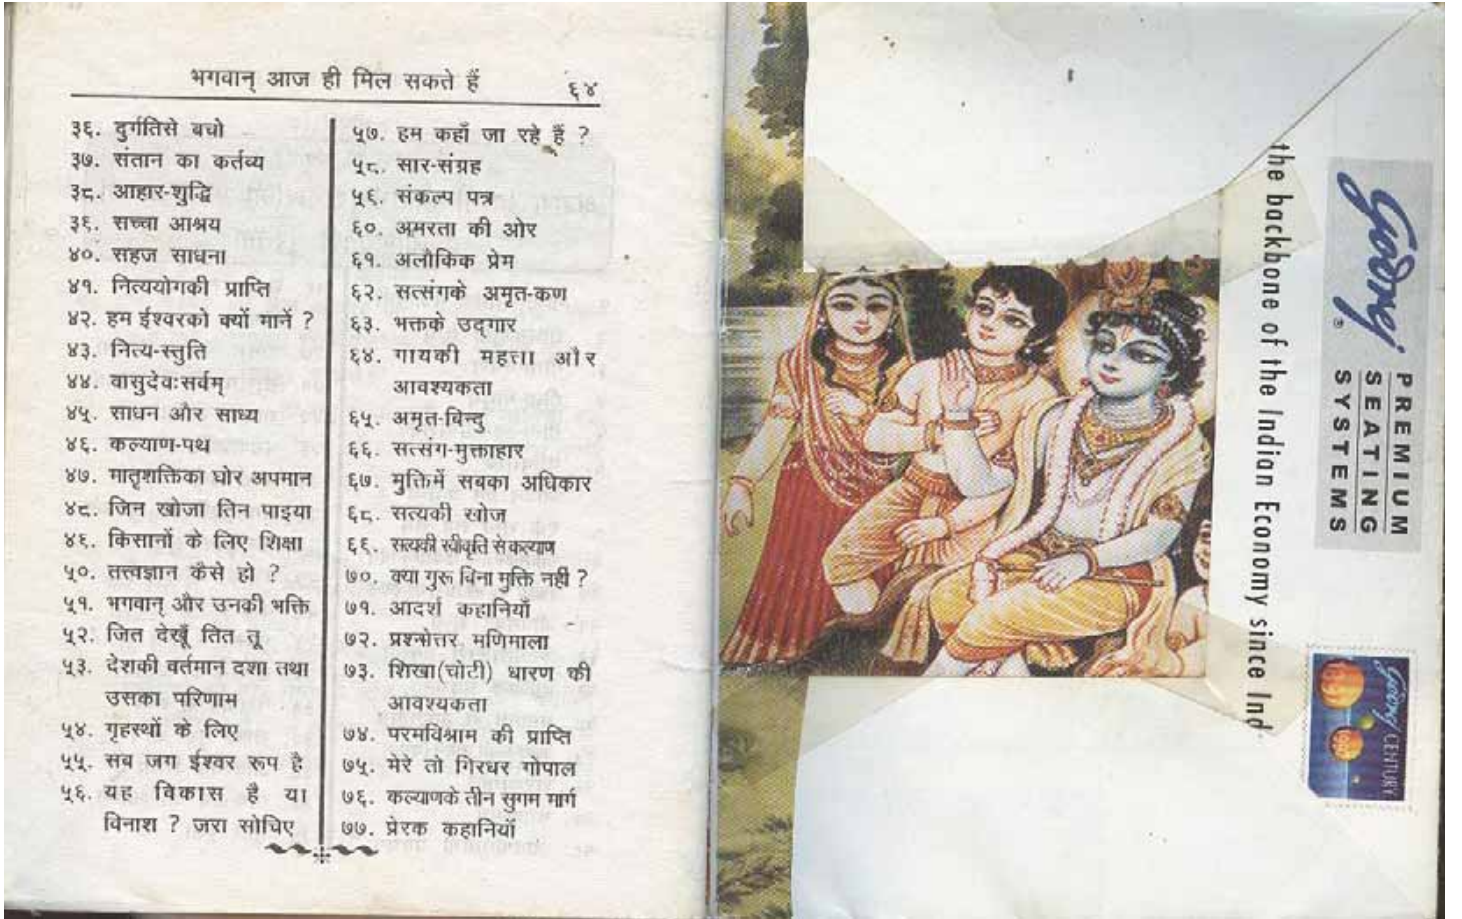 भगवान् आज ही मिल सकते हैं
६४
३६. दुर्गतिसे बचो
३७. संतान का कर्तव्य
३८. आहार-शुद्धि
३६. सच्चा आश्रय
४०. सहज साधना
४१. नित्ययोगकी प्राप्ति
४२. हम ईश्वरको क्यों मानें ?
४३. नित्य-स्तुति
४४. वासुदेवःसर्वम्
४५. साधन और साध्य
४६. कल्याण-पथ
४७. मातृशक्तिका घोर अपमान
४८. जिन खोजा तिन पाइया
४६. किसानों के लिए शिक्षा
५०. तत्त्वज्ञान कैसे हो ?
५१. भगवान् और उनकी भक्ति
५२. जित देखूँ तित तू
५३. देशकी वर्तमान दशा तथा
उसका परिणाम
५४. गृहस्थों के लिए
५५. सब जग ईश्वर रूप है
५६. यह विकास है या
विनाश ? जरा सोचिए
५७. हम कहाँ जा रहे हैं ?
५८. सार-संग्रह
५६. संकल्प पत्र
६०. अमरता की ओर
६१. अलौकिक प्रेम
६२. सत्संगके अमृत-कण
६३. भक्तके उद्‌गार
६४. गायकी महत्ता और
आवश्यकता
६५. अमृत-बिन्दु
६६. सत्संग-मुक्ताहार
६७. मुक्तिमें सबका अधिकार
६८. सत्यकी खोज
६६. सत्यकी स्वीकृति से कल्याण
७०. क्या गुरू बिना मुक्ति नहीं ?
७१. आदर्श कहानियाँ
७२. प्रश्नोत्तर मणिमाला
७३. शिखा(चोटी) धारण की
आवश्यकता
७४. परमविश्राम की प्राप्ति
७५. मेरे तो गिरधर गोपाल
७६. कल्याणके तीन सुगम मार्ग
७७. प्रेरक कहानियाँ
Godrej ®
PREMIUM
SEATING
SYSTEMS
the backbone of the Indian Economy since Ind
Godrej CENTURY